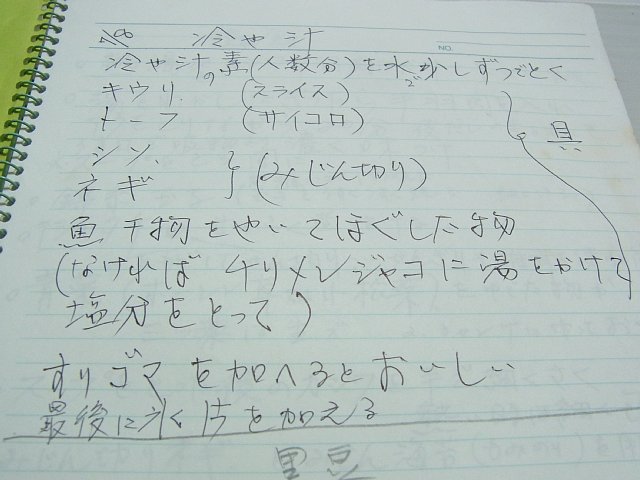 冷や汁
NO.
冷や汁の素(人数分)を水で少しずつとく
キウリ (スライス)
トーフ (サイコロ)
具
シソ、
ネギ } (みじん切り)
魚干物をやいてほぐした物
(なければ チリメンジャコに湯をかけて
塩分をとって)
すりゴマを加へるとおいしい
最後に氷片を加える
黒豆